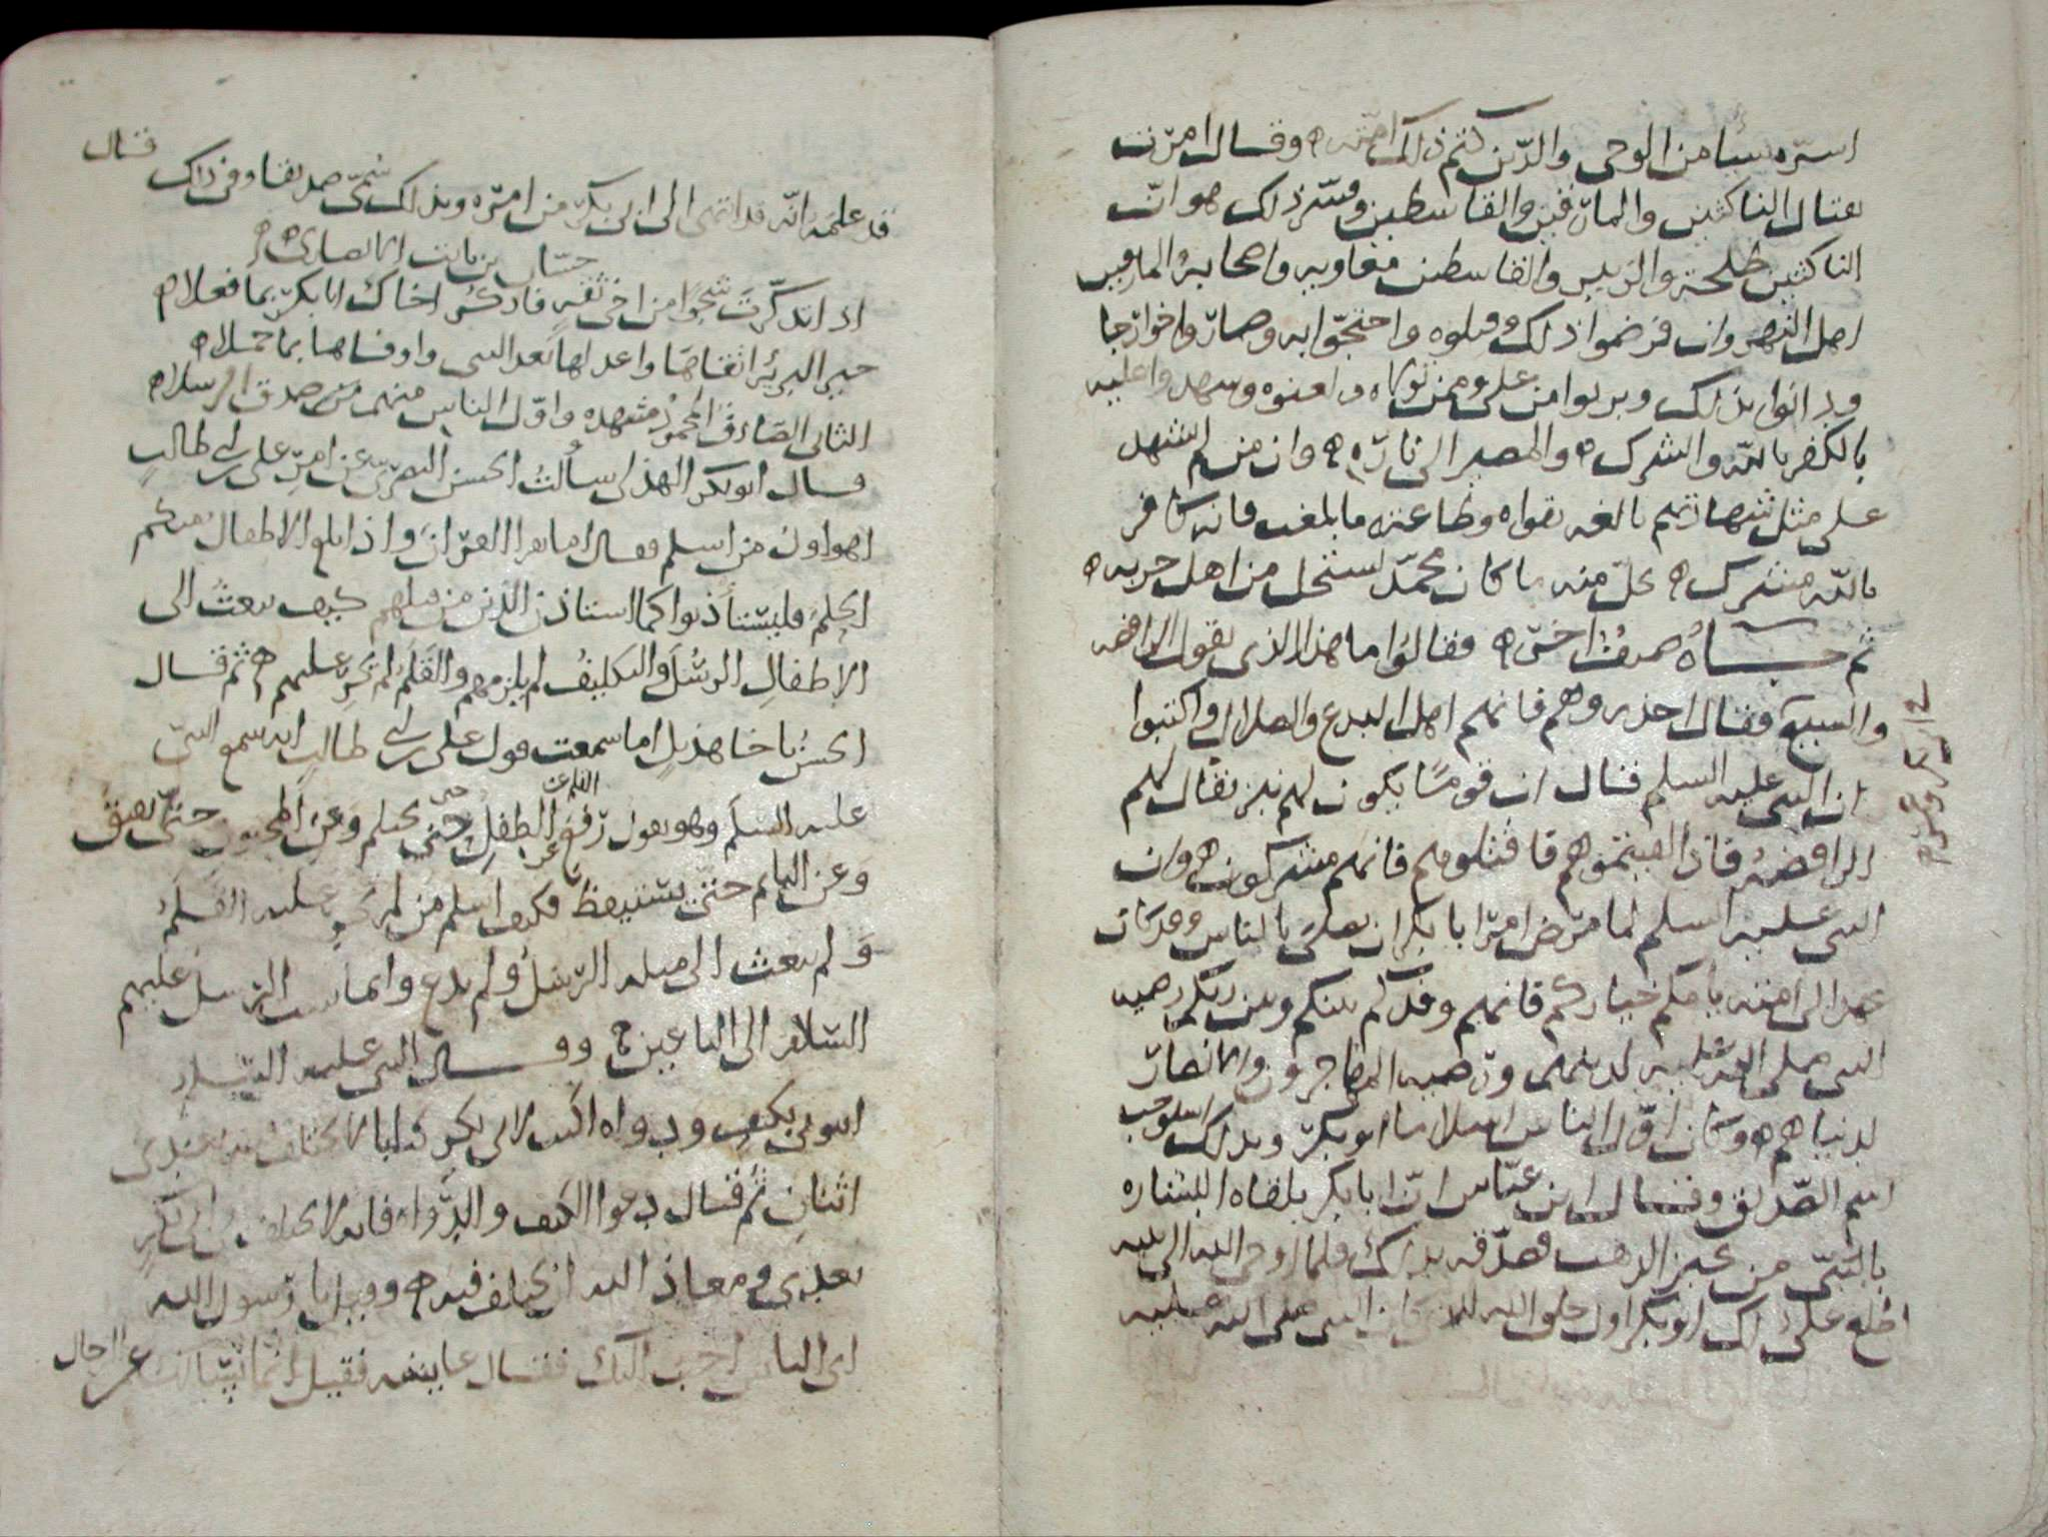 اسرّه شيئا من الوحى والدّين كتم ذلك امته وقال امرت
بقتال الناكثين والمارقين والقاسطين وفسّر ذلك هو انّ
الناكثين طلحة والزبير والقاسطين معاويه واصحابه والمارقين
اهل النهروان فرضوا ذلك وقبلوه واحتجّوا به وصاروا خوارجا
ودانوا بذلك وبروا من على ومن تولاه ولعنوه وشهدوا عليه
بالكفر بالله والشرك والمصير الى ناره وان من لم يشهد
على مثل شهادتهم بالغه تقواه وطاعته ما بلغت فانه كافر
بالله مشرك حلّ منه ما كان محمّد استحل من اهل حربه
ثم جاه صنف اخر فقالوا ما هذا الذى يقول الرافضه
والشيعة فقال احذروهم فانهم اهل البدع والضلال واكتبوا
ان النبى عليه السلم قال ان قومًا يكون لهم نبز يقال لهم
الرافضه فاذا لقيتموهم فاقتلوهم فانهم مشركون وان
النبى عليه السلم لما مرض امر ابا بكر ان يصلى بالناس وقد كان
عهد الى امته يامكم خياركم فانهم وفدكم بينكم وبين ربكم رضيه
النبى صلى الله عليه لدينهم ورضيه المهاجرون والانصار
لدنياهم وكان اوّل الناس اسلاما ابو بكر وبذلك استوجب
اسم الصّديق وقال ابن عبّاس انّ ابا بكر بلغاه البشاره
بالنبىّ من خبر الراهب فصدّقه بذلك فلما اوحى الله الى نبيه
اطلع على ذلك ابو بكر اول خلق الله للذى كان النبى صلى الله عليه
قد علمه انّه قد انتهى الى ابى بكر من امره وبذلك سمّى صديقا وفى ذاك قال
حسّان بن ثابت الانصارى
اذا تذكّرت شجوًا من اخى ثقةٍ فاذكر اخاك ابا بكر بما فعلا
خير البريّة اتقاها واعدلها بعد النبى واوفاها بما حملا
الثانى الصّادق المحمود مشهده واوّل الناس منهم من صدق الرسلا
قال ابو بكر الهذلى سألت الحسن البصرى عن امر على بن ابى طالب
اهو اول من اسلم فقال اما تقرا القرآن واذا بلغ الاطفال منكم
الحلم فليستأذنوا كما استاذن الذين من قبلهم كيف يبعث الى
الاطفال الرسُل والتكليف لم يلزمهم والقلم لم يجر عليهم ثم قال
الحسن يا اخا هذيل اما سمعت قول على بن ابى طالب انه سمع النبىّ
عليه السلم وهو يقول رفع القلم عن الطفل حتى يحتلم وعن المجنون حتّى يفيق
وعن النايم حتّى يستيقظ فكيف اسلم من لم يجر عليه القلم
ولم يبعث الى مثله الرسل ولم يدع وانما بعث الرسل عليهم
السّلام الى البالغين وقال النبى عليه السّلام
ايتونى بكتف ودواه اكتب لابى بكر كتابا لا يختلف فيه بعدى
اثنان ثم قال دعوا الكتف والدّواة فانه لا يختلف فى ابى بكر
بعدى ومعاذ الله ان يختلف فيه وقيل يا رسول الله
اى الناس احب اليك فقال عايشه فقيل انّما نسالك عن الرجال